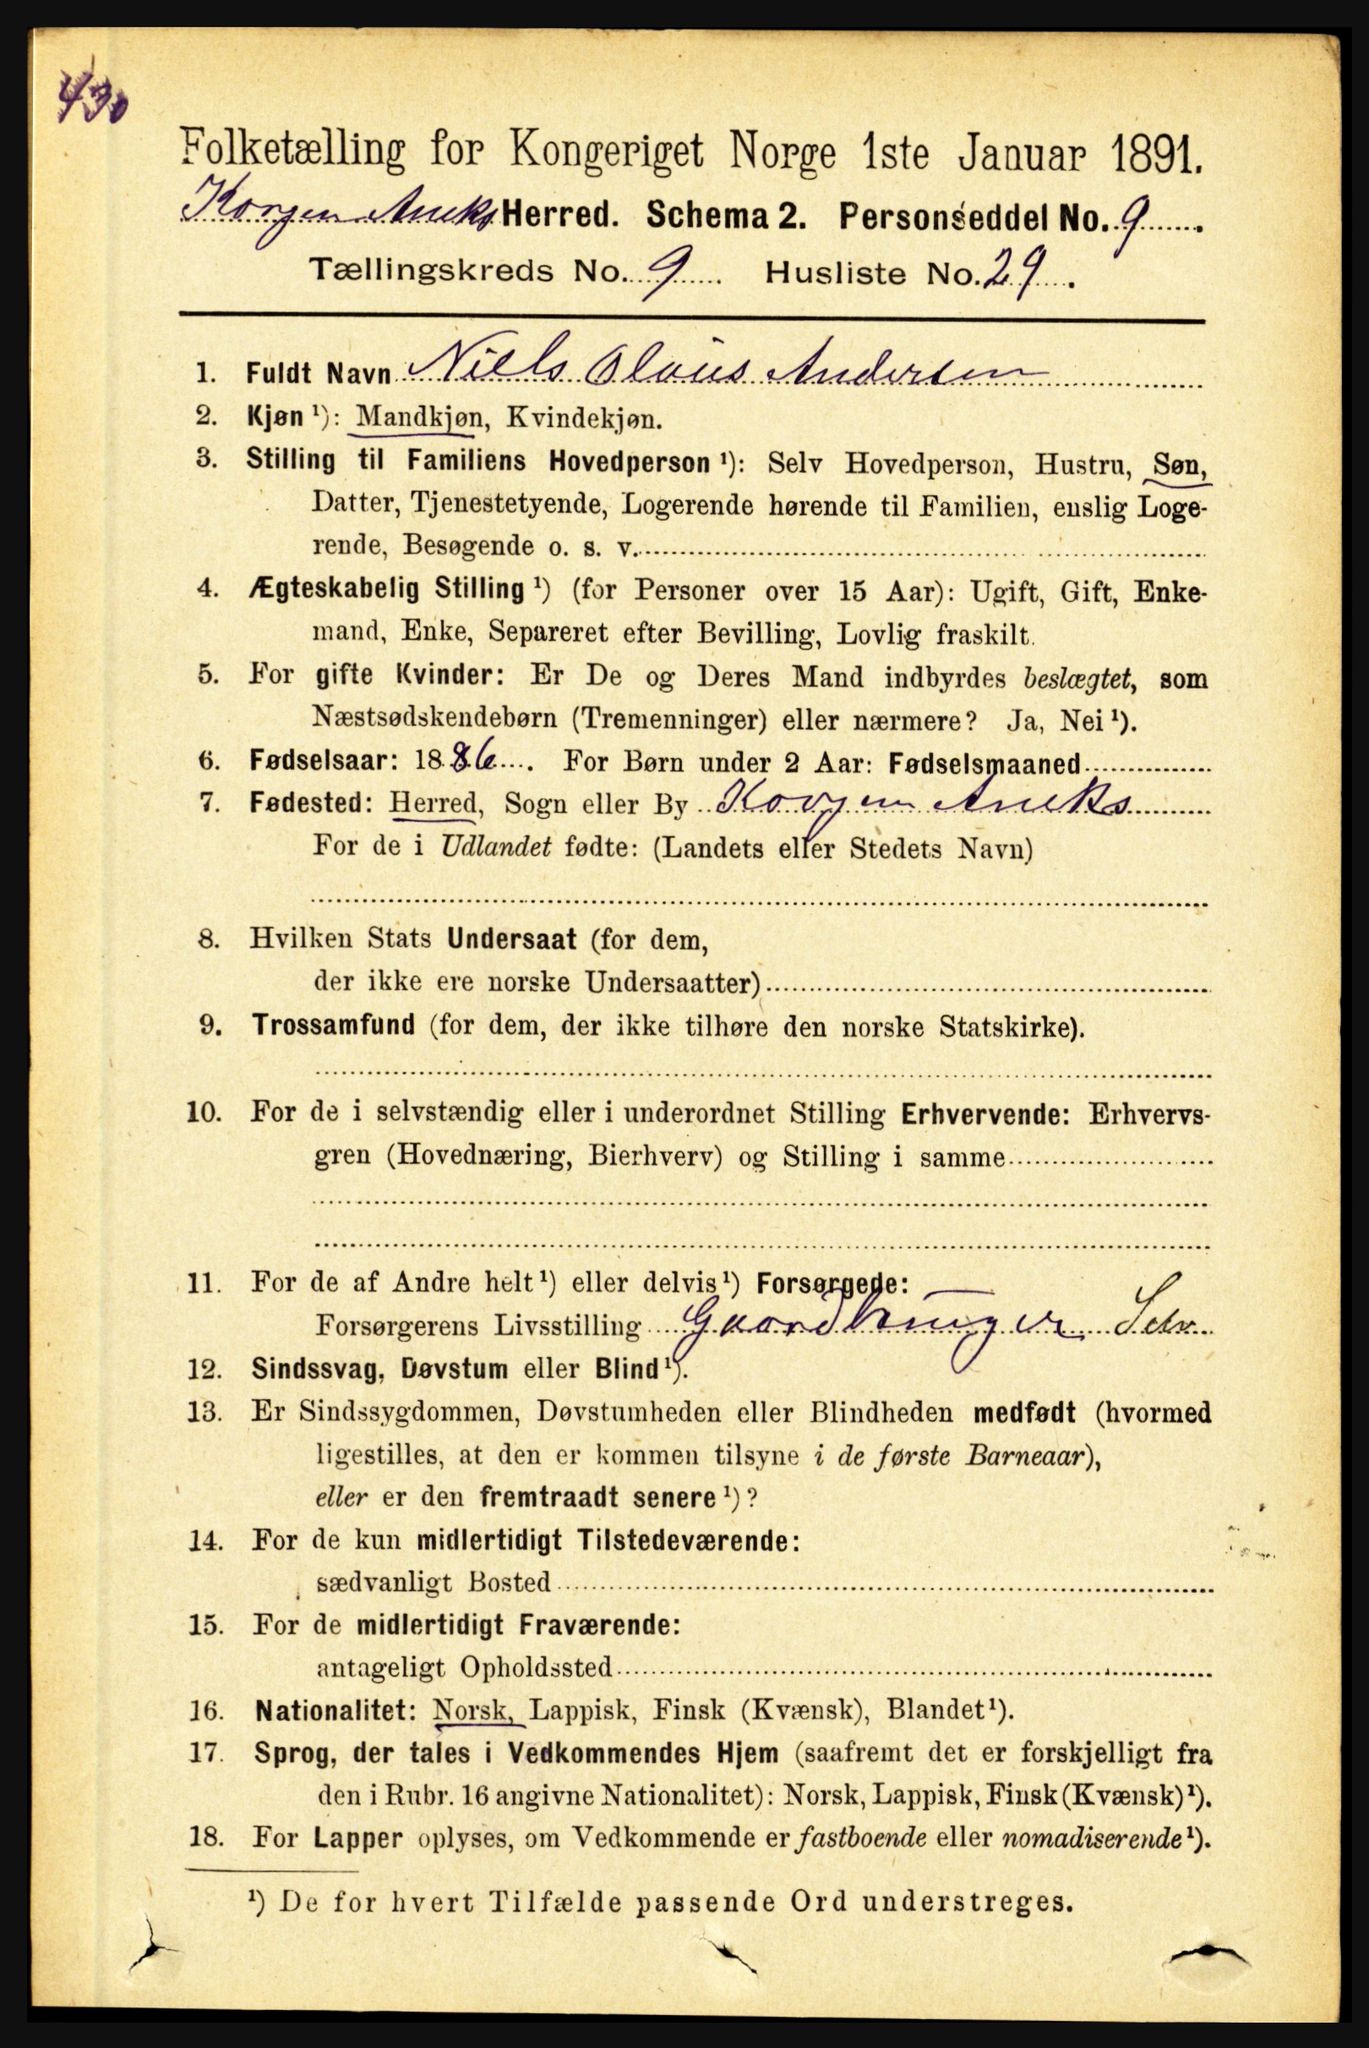 430
Folketælling for Kongeriget Norge 1ste Januar 1891.
Korgen Aneks Herred. Schema 2. Personseddel No. 9.
Tællingskreds No. 9. Husliste No. 29.
1. Fuldt Navn Niels Olaus Andersen
2. Kjøn ¹): Mandkjøn, Kvindekjøn.
3. Stilling til Familiens Hovedperson ¹): Selv Hovedperson, Hustru, Søn,
Datter, Tjenestetyende, Logerende hørende til Familien, enslig Loge-
rende, Besøgende o. s. v.
4. Ægteskabelig Stilling ¹) (for Personer over 15 Aar): Ugift, Gift, Enke-
mand, Enke, Separeret efter Bevilling, Lovlig fraskilt.
5. For gifte Kvinder: Er De og Deres Mand indbyrdes beslægtet, som
Næstsødskendebørn (Tremenninger) eller nærmere? Ja, Nei ¹).
6. Fødselsaar: 1886. For Børn under 2 Aar: Fødselsmaaned
7. Fødested: Herred, Sogn eller By Korgen Aneks
For de i Udlandet fødte: (Landets eller Stedets Navn)
8. Hvilken Stats Undersaat (for dem,
der ikke ere norske Undersaatter)
9. Trossamfund (for dem, der ikke tilhøre den norske Statskirke).
10. For de i selvstændig eller i underordnet Stilling Erhvervende: Erhvervs-
gren (Hovednæring, Bierhverv) og Stilling i samme
11. For de af Andre helt ¹) eller delvis ¹) Forsørgede:
Forsørgerens Livsstilling Gaardbruger Selv
12. Sindssvag, Døvstum eller Blind ¹).
13. Er Sindssygdommen, Døvstumheden eller Blindheden medfødt (hvormed
ligestilles, at den er kommen tilsyne i de første Barneaar),
eller er den fremtraadt senere ¹)?
14. For de kun midlertidigt Tilstedeværende:
sædvanligt Bosted
15. For de midlertidigt Fraværende:
antageligt Opholdssted
16. Nationalitet: Norsk, Lappisk, Finsk (Kvænsk), Blandet ¹).
17. Sprog, der tales i Vedkommendes Hjem (saafremt det er forskjelligt fra
den i Rubr. 16 angivne Nationalitet): Norsk, Lappisk, Finsk (Kvænsk) ¹).
18. For Lapper oplyses, om Vedkommende er fastboende eller nomadiserende ¹).
¹) De for hvert Tilfælde passende Ord understreges.